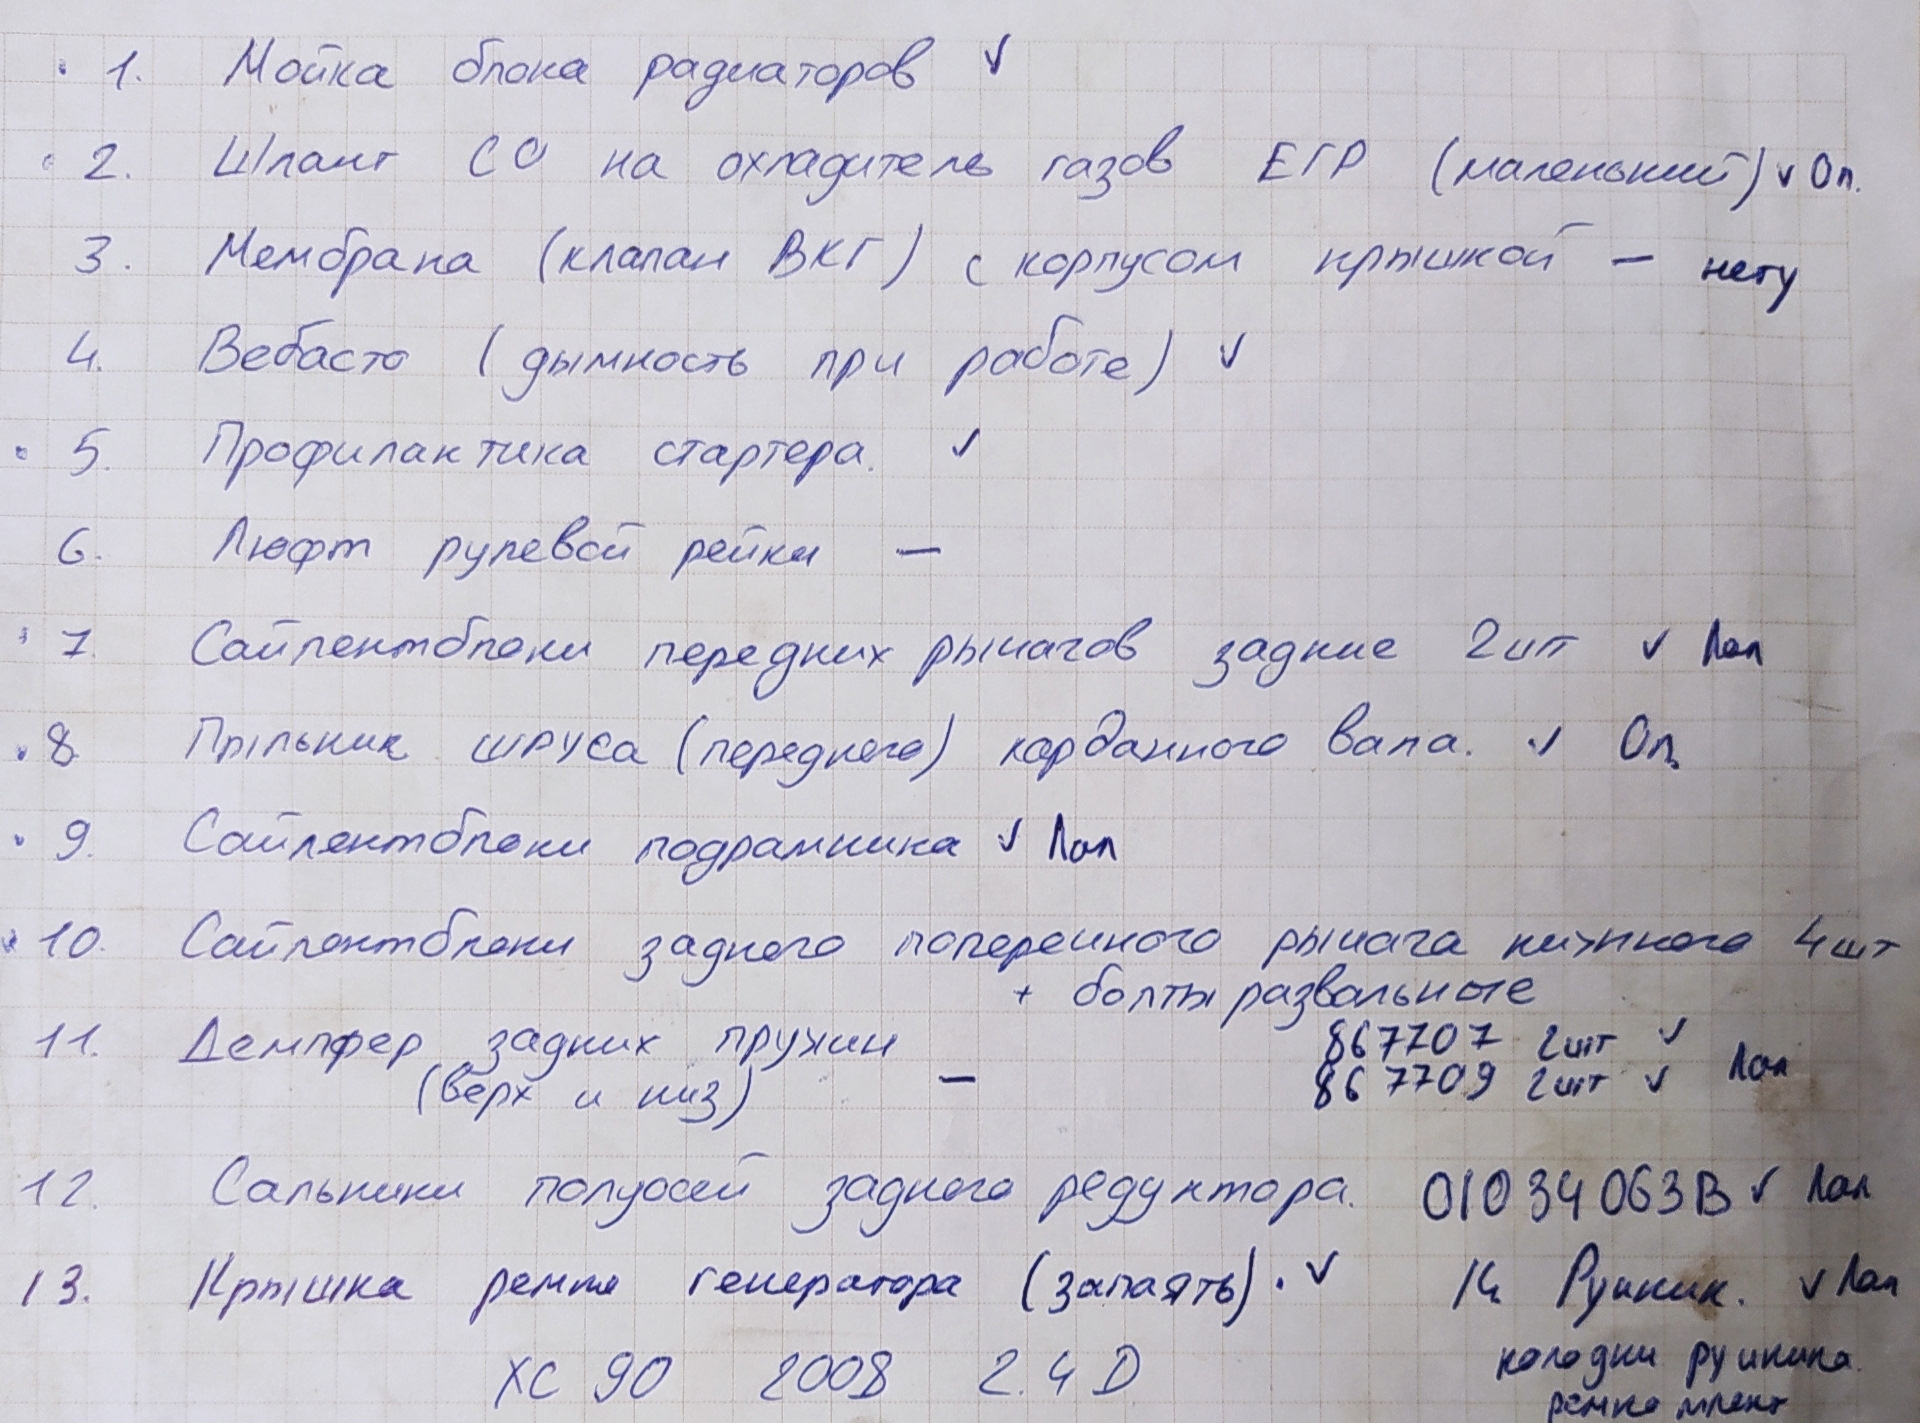 1. Мойка блока радиаторов ✓
2. Шланг СО на охладитель газов ЕГР (маленький) ✓ Ол.
3. Мембрана (клапан ВКГ) с корпусом крышкой — нету
4. Вебасто (дымность при работе) ✓
5. Профилактика стартера. ✓
6. Люфт рулевой рейки —
7. Сайлентблоки передних рычагов задние 2шт ✓ Лал
8. Пыльник шруса (переднего) карданного вала. ✓ Ол.
9. Сайлентблоки подрамника ✓ Лал
10. Сайлентблоки заднего поперечного рычага нижнего 4шт
+ болты развальные
11. Демпфер задних пружин — 867707 2шт ✓
(верх и низ) 867709 2шт ✓ Лал
12. Сальники полуосей заднего редуктора. 01034063В ✓ Лал
13. Крышка ремня генератора (запаять). ✓ 14. Ручник. ✓ Лал
колодки ручника.
ремкомплект
ХС 90 2008 2.4 D